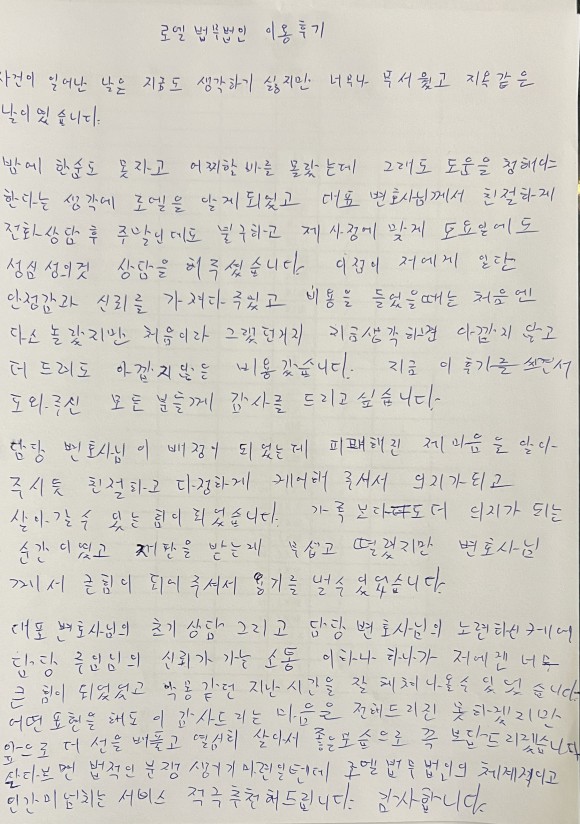 로엘 법무법인 이용후기
사건이 일어난 날은 지금도 생각하기 싫지만 너무나 무서웠고 지옥같은
날이였습니다.
밤에 한숨도 못자고 어찌할바를 몰랐는데 그래도 도움을 청해야
한다는 생각에 로엘을 알게되었고 대표 변호사님께서 친절하게
전화상담 후 주말인데도 불구하고 제 사정에 맞게 토요일에도
성심성의껏 상담을 해주셨습니다. 이점이 저에게 일단
안정감과 신뢰를 가져다 주었고 비용을 들었을때는 처음엔
다소 놀랐지만 처음이라 그랬던거지 지금생각하면 아깝지 않고
더 드려도 아깝지않을 비용같습니다. 지금 이 후기를 쓰면서
도와주신 모든 분들께 감사를 드리고 싶습니다.
담당 변호사님이 배정이 되었는데 피폐해진 제 마음을 알아
주시듯 친절하고 다정하게 케어해 주셔서 의지가되고
살아갈수 있는 힘이 되었습니다. 가족보다도 더 의지가 되는
순간이였고 재판을 받는게 무섭고 떨렸지만 변호사님
께서 큰힘이 되어주셔서 용기를 낼수 있었습니다.
대표 변호사님의 초기 상담 그리고 담당 변호사님의 노련하신 케어
담당 주임님의 신뢰가 가는 소통 하나하나가 저에겐 너무
큰 힘이 되었었고 악몽같던 지난시간을 잘 헤쳐나올수 있었습니다.
어떤표현을 해도 이 감사드리는 마음을 전해드리진 못하겠지만
앞으로 더 선을 베풀고 열심히 살아서 좋은모습으로 꼭 보답드리겠습니다
살다보면 법적인 분쟁 생기기 마련일텐데 로엘 법무법인의 체계적이고
인간미넘치는 서비스 적극추천해드립니다. 감사합니다.